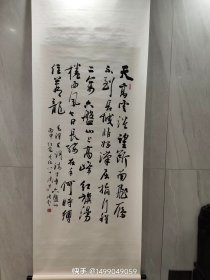 天高雲淡望斷南飛雁
不到長城非好漢屈指行程
二萬六盤山上高峰紅旗漫
捲西風今日長纓在手何時縛
住蒼龍
快手 @1499049059